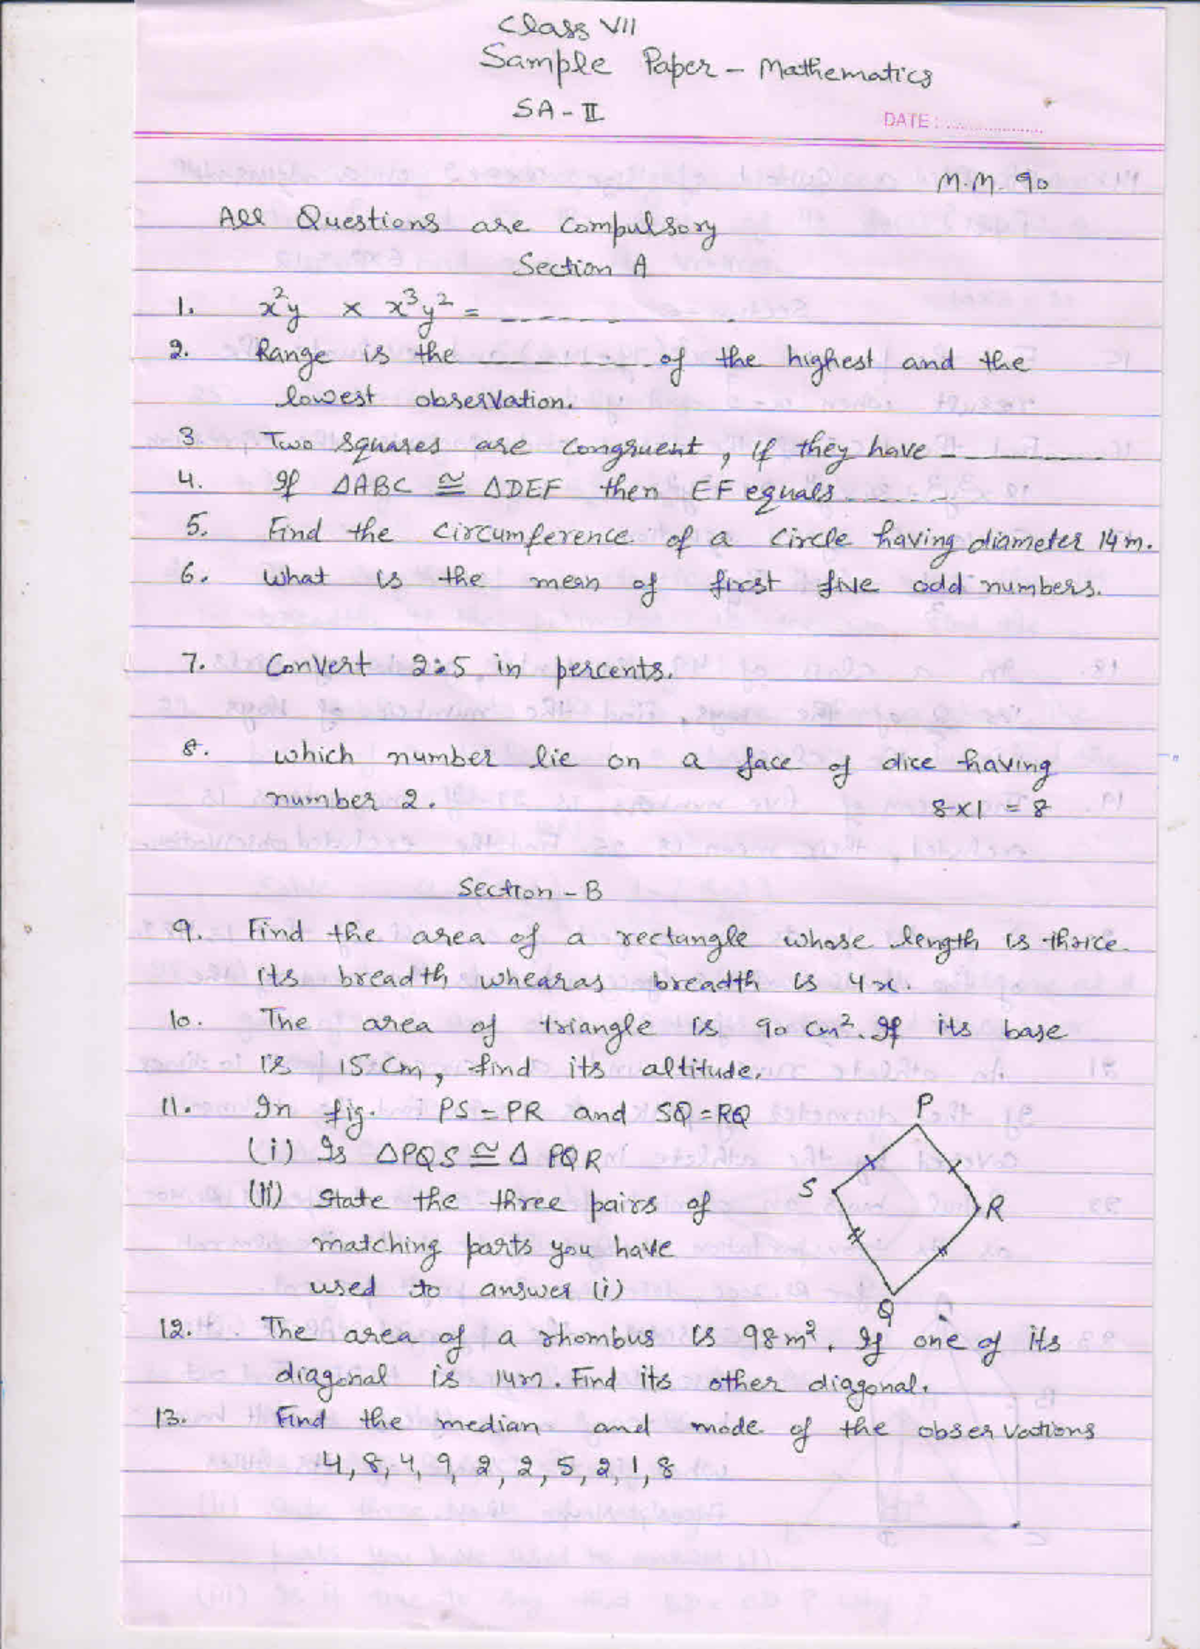 Class VII
Sample Paper - Mathematics
SA - II
DATE : ....................
M.M. 90
All Questions are compulsory
Section A
1. x²y × x³y² = ------
2. Range is the --------- of the highest and the
lowest observation.
3 Two squares are congruent, if they have ---------
4. If △ABC ≅ △DEF then EF equals ------
5. Find the circumference of a circle having diameter 14m.
6. What is the mean of first five odd numbers.
7. Convert 2:5 in percents.
8. which number lie on a face of dice having
number 2.
8×1 = 8
Section - B
9. Find the area of a rectangle whose length is thrice
its breadth whearas breadth is 4x.
10. The area of triangle is 90 cm². If its base
is 15 cm, find its altitude.
11. In fig. PS = PR and SQ = RQ
(i) Is △PQS ≅ △ PQR
(ii) State the three pairs of
matching parts you have
used to answer (i)
P
S
R
Q
12. The area of a rhombus is 98m². If one of its
diagonal is 14m. Find its other diagonal.
13. Find the median and mode of the observations
4, 8, 4, 9, 2, 2, 5, 2, 1, 8